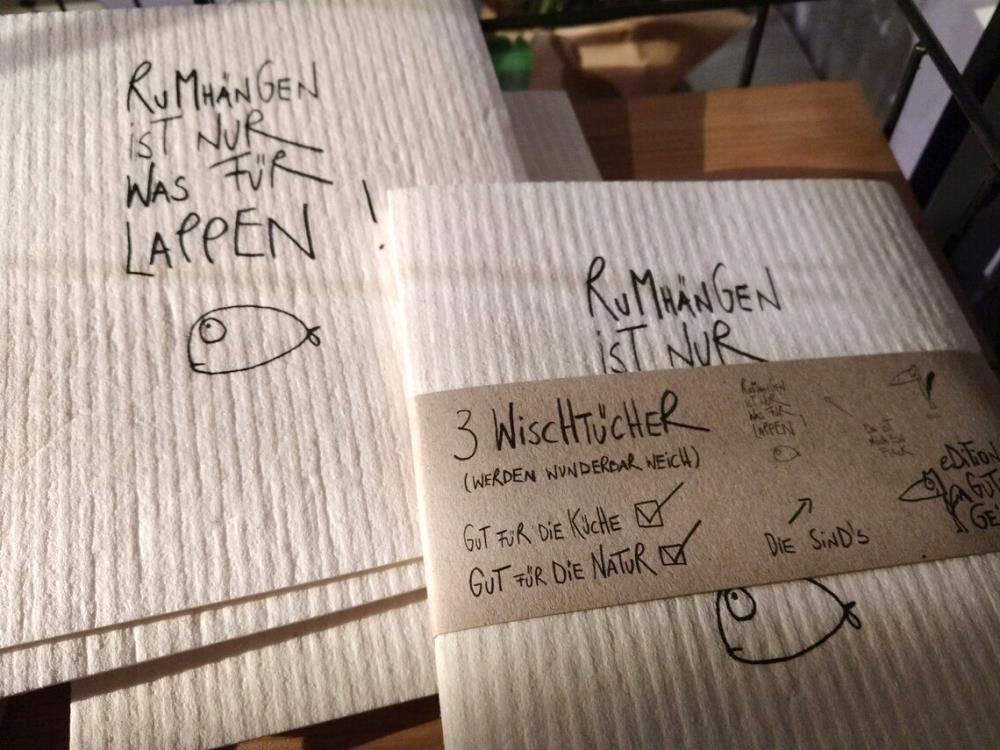 RUMHÄNGEN
iST NUR
WAS FÜR
LAPPEN!
RUMHÄNGEN
iST NUR
3 WiSCHTÜCHER
(WERDEN WUNDERBAR WEICH)
GUT FÜR DiE KÜCHE
GUT FÜR DiE NATUR
RUMHÄNGEN
iST NUR
WAS FÜR
LAPPEN!
DiE SiND'S
eDiTiON
GUT